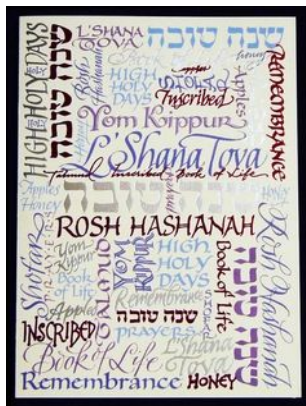 HIGH HOLY DAYS
שנה טובה
L'SHANA TOVA
שנה טובה
Rosh Hashanah
HIGH HOLY DAYS
SHOFAR
Inscribed
Apples
Honey
REMEMBRANCE
Yom Koippur
L'Shana Tova
Talmud Inscribed Book of Life
Apples Honey
שנה טובה
ROSH HASHANAH
Shofar
PRAYERS
Yom Kippur
Book of Life
Apples
Talmud
YOM KIPPUR
HIGH HOLY DAYS
Book of Life
שנה טובה
Rosh Hashanah
Remembrance
שנה טובה
PRAYERS
INSCRIBED
Book of Life
L'Shana Tova
Remembrance
HONEY